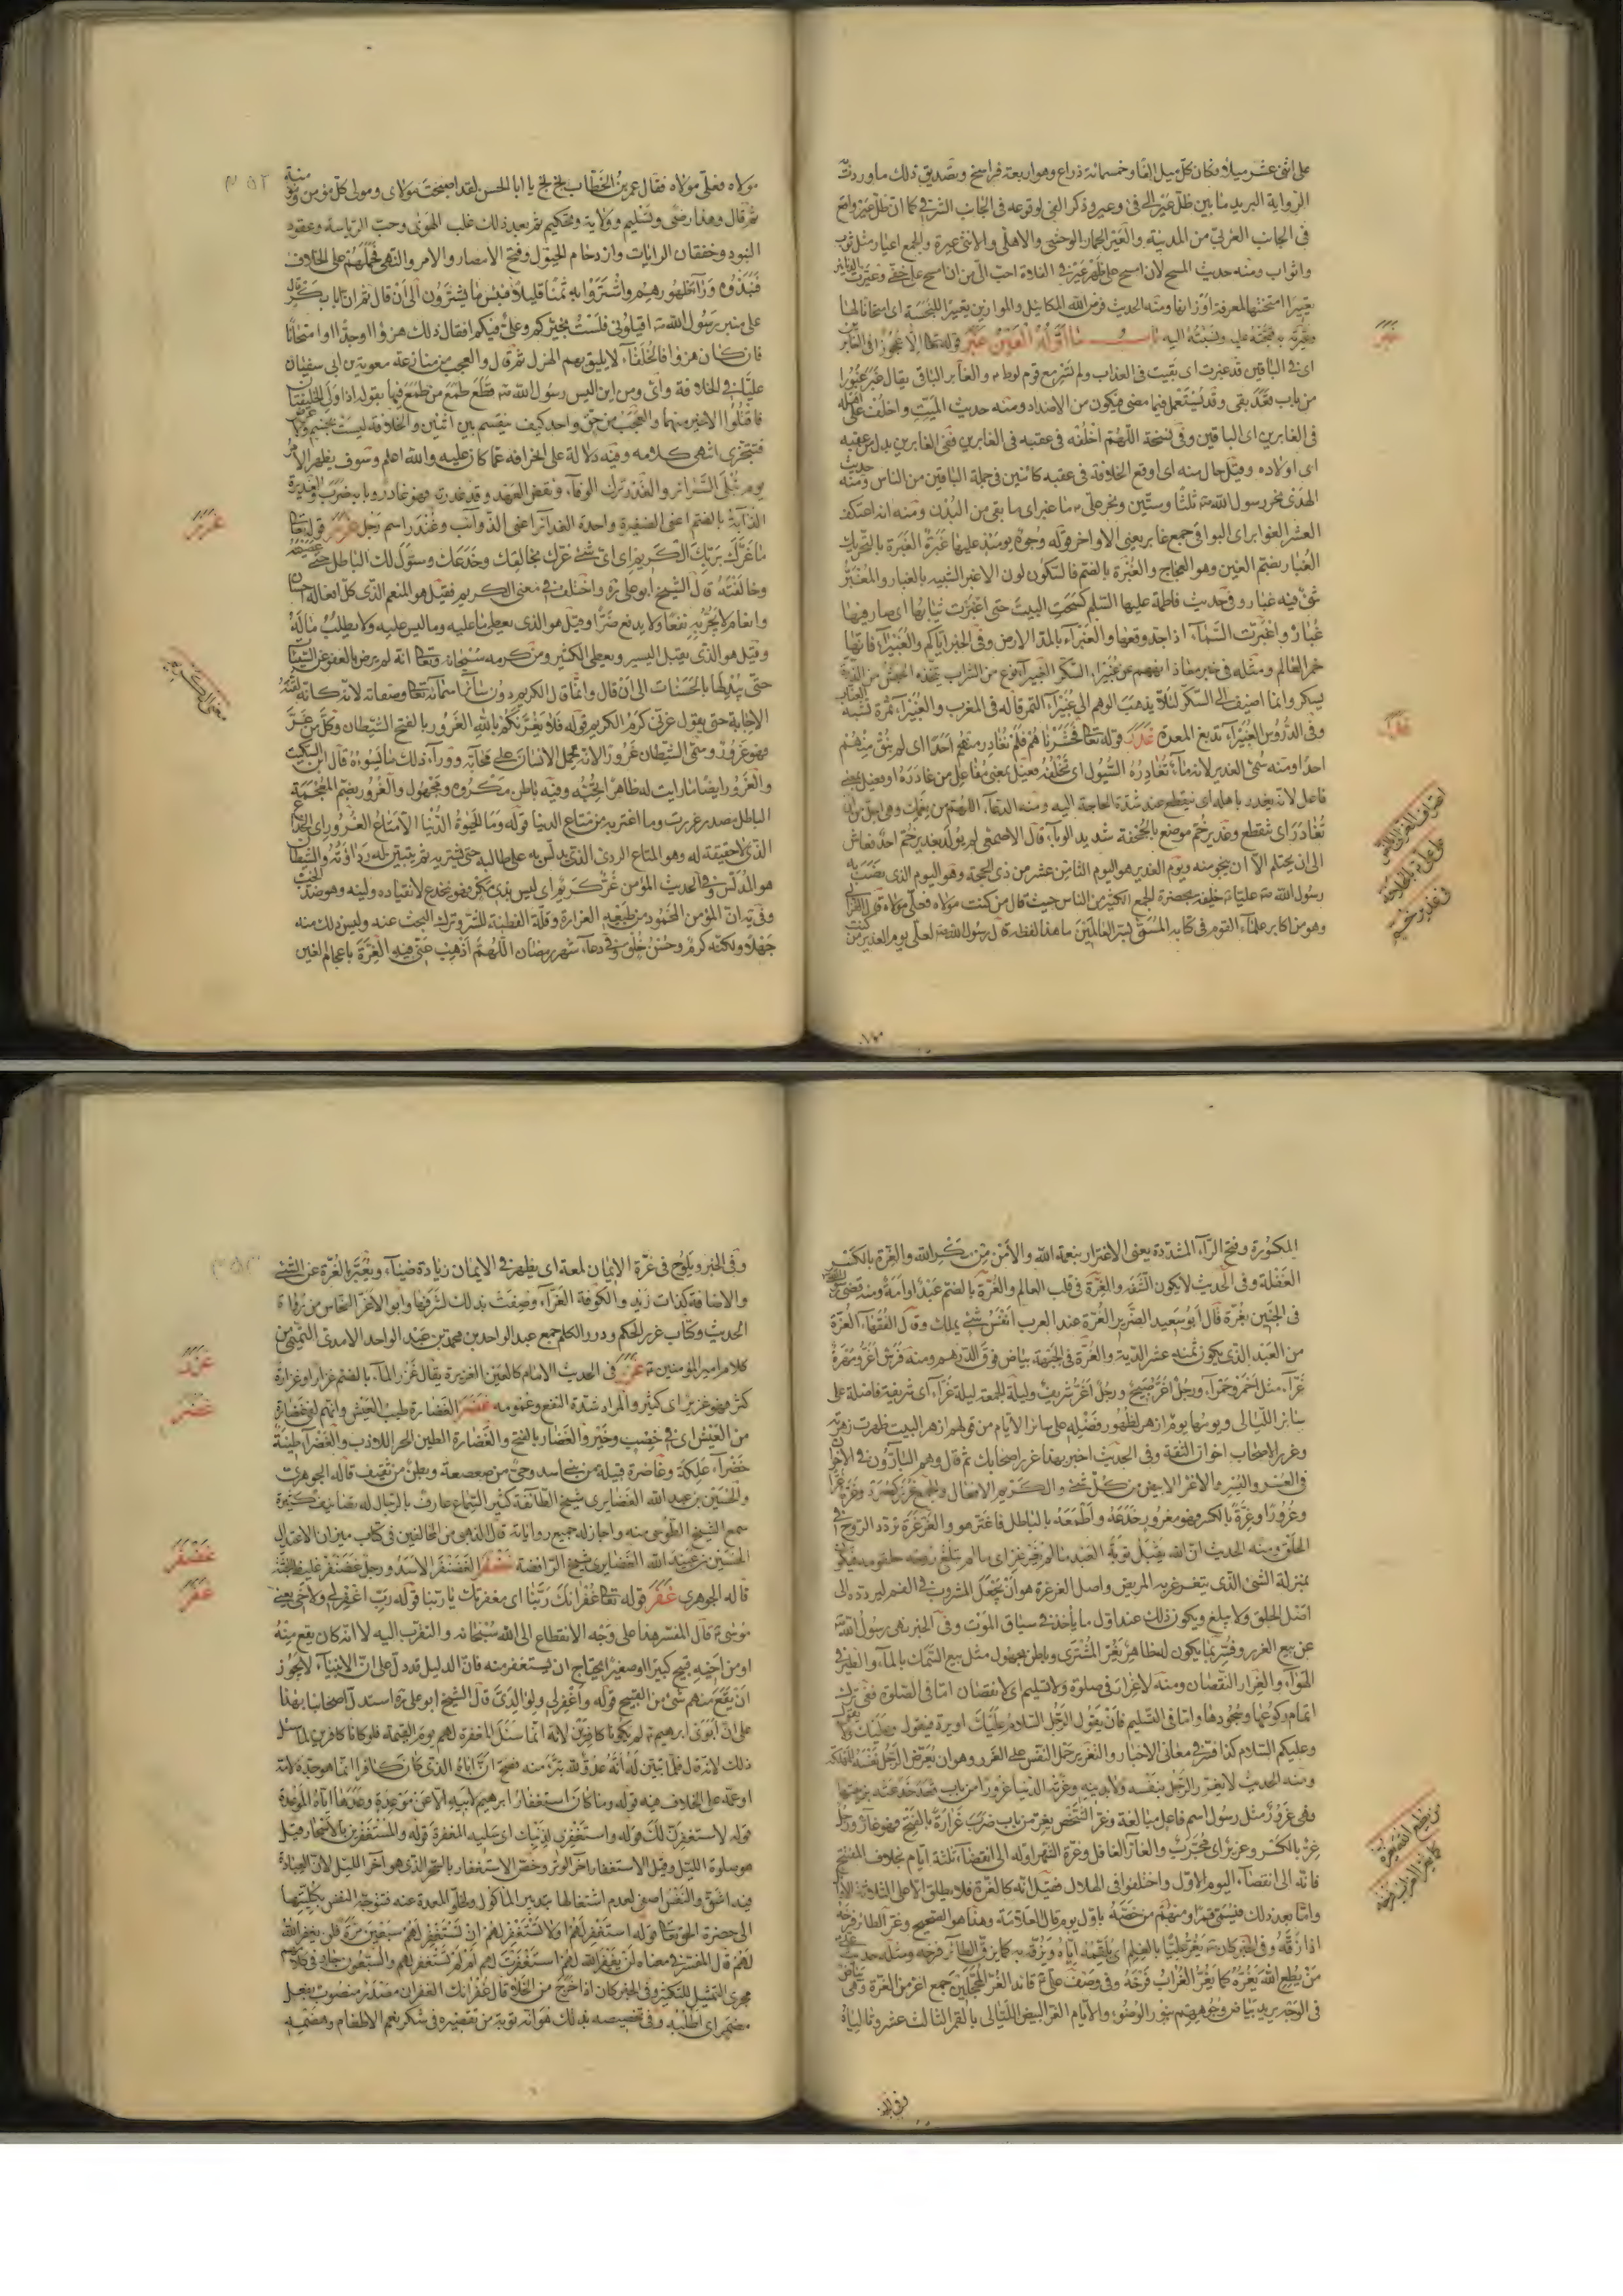 على اثنى عشر ميلا فكان كل ميل الفا وخمسمائة ذراع وهو اربعة فراسخ وتصديق ذلك ما وردت
الرواية البريد ما بين ظل عير الى فئ وعير وذكر الفئ لوقوعه فى الجانب الشرقى كما ان ظل عير واقع
فى الجانب الغربى من المدينة والعير الحمار الوحشى والاهلى والانثى عيرة والجمع اعيار مثل ثوب
واثواب ومنه حديث المسح لان امسح على ظهر عير فى الفلاة احب الى من ان امسح على خفى وعيرت الدنانير
تعييرا امتحنتها لمعرفة اوزانها ومنه الحديث فرض الله المكائيل والموازين تعييرا للبخسة اى امتحانا لها
وعيرته به قبحته عليه ونسبته اليه باب ما اوله الغين غبر قوله تعالى الا عجوزا فى الغابرين
اى فى الباقين قد غبرت اى بقيت فى العذاب ولم تسر مع قوم لوط والغابر الباقى يقال غبر غبورا
من باب قعد بقى وقد يستعمل فيما مضى فيكون من الاضداد ومنه حديث الميت واخلف على اهله
فى الغابرين اى الباقين وفى نسخة اللهم اخلفه فى عقبه فى الغابرين فى الغابرين بدل من عقبه
اى اولاده وقيل حال منه اى اوقع الخلافة فى عقبه كائنين فى جملة الباقين من الناس ومنه حديث
الهدى نحر رسول الله ثلثا وستين ونحر على ما غبر اى ما بقى من البدن ومنه انه اعتكف
العشر الغوابر اى البواقى جمع غابر يعنى الاواخر قوله وجوه يومئذ عليها غبرة الغبرة بالتحريك
الغبار بضم الغين وهو العجاج والغبرة بالضم فالسكون لون الاغبر الشبيه بالغبار والمغبر
شئ فيه غبار وفى حديث فاطمة عليها السلم كسحت البيت حتى اغبرت ثيابها اى صار فيها
غبار واغبرت السماء اذا جد وقعها والغبراء بالمد الارض وفى الخبر اياكم والغبيراء فانها
خمر العالم ومثله فى خبر معاذ انههم عن غبيراء السكر الغبيراء نوع من الشراب يتخذه الحبش من الذرة
يسكر وانما اضيف الى السكر لئلا يذهب الوهم الى غبيراء التمر قاله فى المغرب والغبيراء ثمرة تشبه العناب
وفى الدروس الغبيراء تدبغ المعدة غدر قوله تعالى فحشرناهم فلم نغادر منهم احدا اى لم نبق منهم
احدا ومنه سمى الغدير لانه ماء تغادره السيول اى تخلفه فعيل بمعنى مفاعل من غادره او فعيل بمعنى
فاعل لانه يغدر باهله اى ينقطع عند شدة الحاجة اليه ومنه الدعاء اللهم من نعمك وهى اجل من ان
تغادر اى تنقطع وغدير خم موضع بالجحفة شديد الوباء قال الاصمعى لم يولد بغدير خم احد فعاش
الى ان يحتلم الا ان ينجو منه ويوم الغدير هو اليوم الثامن عشر من ذى الحجة وهو اليوم الذى نصب به
رسول الله عليا خليفة بحضرة الجمع الكثير من الناس حيث قال من كنت مولاه فعلى مولاه قال الغزالى
وهو من اكابر علماء القوم فى كتابه المسمى بسر العالمين ما هذا لفظه قال رسول الله لعلى يوم الغدير من كنت
غبر
غدر
مولاه فعلى مولاه فقال عمر بن الخطاب بخ بخ يا ابا الحسن لقد اصبحت مولاى ومولى كل مؤمن ومؤمنة
ثم قال وهذا رضى وتسليم وولاية وتحكيم ثم بعد ذلك غلب الهوى وحب الرياسة وعقود
البنود وخفقان الرايات وازدحام الخيول وفتح الامصار والامر والنهى فحملهم على الخلاف
فنبذوه وراء ظهورهم واشتروا به ثمنا قليلا فبئس ما يشترون الى ان قال ثم ان ابا بكر قال
على منبر رسول الله اقيلونى فلست بخيركم وعلى فيكم افقال ذلك هزؤا او جدا او امتحانا
فان كان هزؤا فالخلفاء لا يليق بهم الهزل ثم قال والعجب من منازعة معوية بن ابى سفيان
عليا فى الخلافة واين ومن اين اليس رسول الله قطع طمع من طمع فيها بقوله اذا ولى الخليفتان
فاقتلوا الاخير منهما والعجب من حق واحد كيف ينقسم بين اثنين والخلافة ليست بجسم ولا عرض
فتتجزى انتهى كلامه وفيه دلالة على انحرافه عما كان عليه والله اعلم وسوف يظهر الامر
يوم تبلى السرائر والغدر ترك الوفاء ونقض العهد وقد غدر به فهو غادر وبابه ضرب والغديرة
الذؤابة بالضم اعنى الضفيرة واحدة الغدائر اعنى الذوائب وغندر اسم رجل غرر قوله تعالى
ما غرك بربك الكريم اى اى شئ غرك بخالقك وخدعك وسول لك الباطل حتى عصيته
وخالفته قال الشيخ ابو على ره واختلف فى معنى الكريم فقيل هو المنعم الذى كل افعاله احسان
وانعام لا يجر به نفعا ولا يدفع ضرا وقيل هو الذى يعطى ما عليه وما ليس عليه ولا يطلب ما له
وقيل هو الذى يقبل اليسير ويعطى الكثير ومن كرمه سبحانه وتعالى انه لم يرض بالعفو عن السيئات
حتى بدلها بالحسنات الى ان قال وانما قال الكريم دون سائر اسمائه تعالى وصفاته لانه كانه لقنه
الاجابة حتى يقول غرنى كرم الكريم قوله فلا يغرنكم بالله الغرور بالفتح الشيطان وكل من غر
فهو غرور وسمى الشيطان غرورا لانه يحمل الانسان على محابه ووراء ذلك ما يسوؤه قال ابن السكيت
والغرور ايضا ما رايت له ظاهرا تحبه وفيه باطن مكروه ومجهول والغرور بضم المعجمة
الباطل مصدر غررت وما اغتر به من متاع الدنيا قوله وما الحيوة الدنيا الا متاع الغرور اى الخداع
الذى لا حقيقة له وهو المتاع الردئ الذى يدلس به على طالبه حتى يشتريه ثم يتبين له رداءته والشيطان
هو المدلس وفى الحديث المؤمن غر كريم اى ليس بذى نكر فهو ينخدع لانقياده ولينه وهو ضد الخب
وفى يريد ان المؤمن المحمود من طبعه الغرارة وقلة الفطنة للشر وترك البحث عنه وليس ذلك منه
جهلا ولكنه كرم وحسن خلق وفى دعاء شهر رمضان اللهم اذهب عنى فيه الغرة باعجام الغين
غرر
معنى الكريم
المكسورة وفتح الراء المشددة يعنى الاغترار بنعمة الله والامن من مكر الله والغرة بالكسر
الغفلة وفى الحديث لا يكون السفه والغرة فى قلب العالم والغرة بالضم عبد او امة ومنه قضى رسول الله
فى الجنين بغرة قال ابو سعيد الضرير الغرة عند العرب انفس شئ يملك وقال الفقهاء الغرة
من العبد الذى يكون ثمنه عشر الدية والغرة فى الجبهة بياض فوق الدرهم ومنه فرس اغر ومهرة
غراء مثل احمر وحمراء ورجل اغر صبيح ورجل اغر شريف وليلة الجمعة ليلة غراء اى شريفة فاضلة على
سائر الليالى ويومها يوم ازهر لظهور فضله على سائر الايام من قولهم ازهر البيت ظهرت زهرته
وغرر الاصحاب اخوان الثقة وفى الحديث اخبر بهذا غرر اصحابك ثم قال وهم البارون فى الاخوان
فى العسر واليسر والاغر الابيض من كل شئ والكريم الافعال والجمع غرر كصرد وغره غرا
وغرورا وغرة بالكسر فهو مغرور خدعه واطمعه بالباطل فاغتر هو والغرغرة تردد الروح فى
الحلق ومنه الحديث ان الله يقبل توبة العبد ما لم يغرغر اى ما لم تبلغ روحه حلقومه فيكون
بمنزلة الشئ الذى يتغرغر به المريض واصل الغرغرة هو ان يجعل المشروب فى الفم ليردده الى
اصل الحلق ولا يبلع ويكون ذلك عند اول ما ياخذ فى سياق الموت وفى الخبر نهى رسول الله
عن بيع الغرر وفسر بما يكون له ظاهر يغر المشترى وباطن مجهول مثل بيع السمك بالماء والطير فى
الهواء والغرار النقصان ومنه لا غرار فى صلوة ولا تسليم اى لا نقصان اما فى الصلوة ففى ترك
اتمام ركوعها وسجودها واما فى التسليم فان يقول الرجل السلام عليك او يرد فيقول وعليك ولا يقول
وعليكم السلام كذا فسر فى معانى الاخبار والتغرير حمل النفس على الغرر وهو ان يعرض الرجل نفسه للمهلكة
ومنه الحديث لا يغرر الرجل بنفسه ولا بدينه وغرته الدنيا غرورا من باب قعد خدعته بزينتها
وهى غرور مثل رسول اسم فاعل مبالغة وغر الشخص يغر من باب ضرب غرارة بالفتح فهو غار ورجل
غر بالكسر وغرير اى غير مجرب والغار الغافل وغرة الشهر اوله الى انقضاء ثلثة ايام بخلاف المفتتح
فانه الى انقضاء اليوم الاول واختلفوا فى الهلال فقيل انه كالغرة فلا يطلق الا على الثلاثة الاول
واما بعد ذلك فيسمى قمرا ومنهم من خصه باول يوم قال العلامة وهذا هو الصحيح وغر الطائر فرخه
اذا زقه وفى الخبر كان يغر عليا بالعلم اى يلقمه اياه ويزقه به كما يزق الطائر فرخه ومثله حديث على
من يطع الله يغره كما يغر الغراب فرخه وفى وصف على قائد الغر المحجلين جمع اغر من الغرة وهى بياض
فى الوجه يريد بياض وجوههم بنور الوضوء والايام الغر البيض الليالى بالقمر الثالث عشر وتالياه
وفى الخبر ويلوح فى غرة الايمان لمعة اى يظهر فى الايمان زيادة ضياء ويعبر بالغرة عن الشئ
والاضافة كذات زيد والكوفة الغراء وصفت بذلك لشرفها وابو الاغر النحاس من رواة
الحديث وكتاب غرر الحكم ودرر الكلم جمع عبد الواحد بن محمد بن عبد الواحد الامدى التميمى من
كلام امير المؤمنين غزر فى الحديث الامام كالعين الغزيرة يقال غزر الماء بالضم غزارا وغزارة
كثر فهو غزير اى كثير والمراد شدة النفع وعمومه غضر الغضارة طيب العيش وانهم لفى غضارة
من العيش اى فى خصب وخير والغضار بالفتح والغضارة الطين الحر اللازب والغضراء طينة
خضراء علكة وغاضرة قبيلة من بنى اسد وحى من صعصعة وبطن من ثقيف قاله الجوهرى
والحسين بن عبيد الله الغضايرى شيخ الطائفة كثير السماع عارف بالرجال له تصانيف كثيرة
سمع الشيخ الطوسى منه واجاز له جميع رواياته قال الذهبى من المخالفين فى كتاب ميزان الاعتدال
الحسين بن عبيد الله الغضايرى شيخ الرافضة غضفر الغضنفر الاسد ورجل غضنفر غليظ الجثة
قاله الجوهرى غفر قوله تعالى غفرانك ربنا اى مغفرتك يا ربنا قوله رب اغفر لى ولاخى يعنى
موسى قال المفسر هذا على وجه الانقطاع الى الله سبحانه والتقرب اليه لا انه كان يقع منه
او من اخيه قبيح كبيرا او صغيرا يحتاج ان يستغفر منه فان الدليل قد دل على ان الانبياء لا يجوز
ان يقع منهم شئ من القبيح قوله واغفر لى ولوالدى قال الشيخ ابو على ره استدل اصحابنا بهذا
على ان ابوى ابرهيم لم يكونا كافرين لانه انما سئل المغفرة لهم يوم القيمة فلو كانا كافرين لما سئل
ذلك لانه قال فلما تبين له انه عدو لله تبرا منه فصح ان اباه الذى كان كافرا انما هو جده لامه
او عمه على الخلاف فيه قوله وما كان استغفار ابرهيم لابيه الا عن موعدة وعدها اياه الموعدة
قوله لاستغفرن لك قوله واستغفرى لذنبك اى سليه المغفرة قوله والمستغفرين بالاسحار قيل
هو صلوة الليل وقيل الاستغفار اخر الوتر وخص الاستغفار بالسحر الذى هو آخر الليل لان العبادة
فيه اشق والنفس اصفى لعدم اشتغالها بتدبير الماكول وخلو المعدة عنه فتوجه النفس بكليتها
الى حضرة الحق تعالى قوله استغفر لهم او لا تستغفر لهم ان تستغفر لهم سبعين مرة فلن يغفر الله
لهم قال المفسر فى معناه لن يغفر الله لهم استغفرت لهم ام لم تستغفر لهم والسبعون جار فى كلامهم
مجرى التمثيل للتكثير وفى الخبر كان اذا خرج من الخلاء قال غفرانك الغفران مصدر منصوب بفعل
مضمر اى اطلبه وفى تخصيصه بذلك هو انه توبة من تقصيره فى شكر نعم الاطعام وهضمه
غزر
غضر
غضفر
غفر